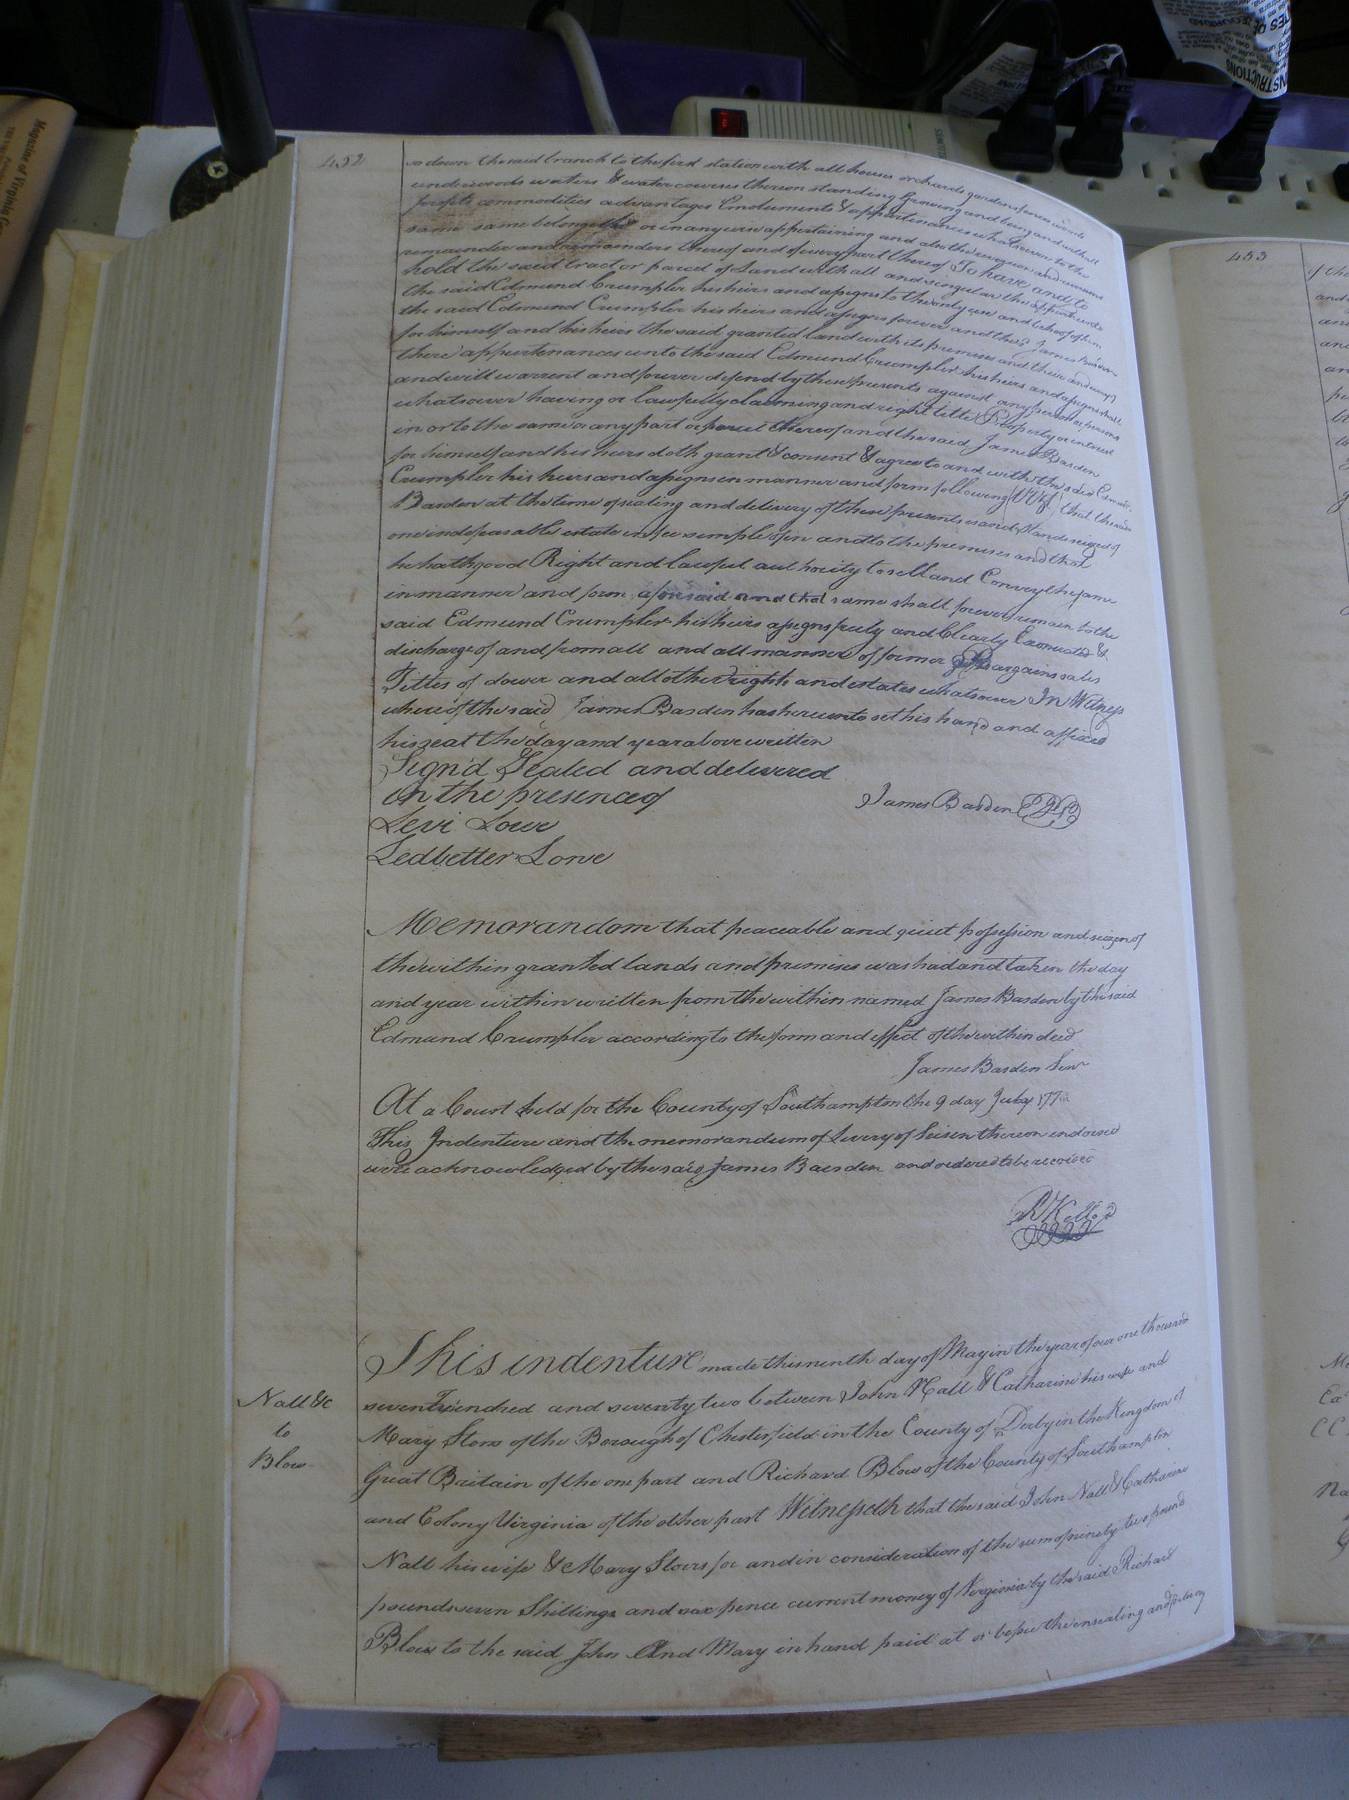 452
so down the said branch to the first station with all houses orchards gardens fences woods
underwoods waters & watercourses thereon standing growing and being and with all
profits commodities advantages Emoluments & appurtenances whatsoever to the
same same belonging or in anywise appertaining and also the reversion and
remainder and remainders thereof and of every part thereof To have and to
hold the said tract or parcel of Land with all and singular the appurtenances
the said Edmund Crumpler his heirs and assigns to the only use and behoof of him
the said Edmund Crumpler his heirs and assigns forever and the James Basden
for himself and his heirs the said granted land with its premises and their and every
there appurtenances unto the said Edmund Crumpler his heirs and assigns shall
and will warrent and forever defend by these presents against any person or persons
whatsoever having or lawfully claiming and right title Property or interest
in or to the same or any part or parcel thereof and the said James Basden
for himself and his heirs doth grant & consent & agree to and with the said Edmund
Crumpler his heirs and assigns in manner and form following (Vizt) that the said
Basden at the time of sealing and delivery of these presents is and stands seized of
one indefeasable estate in fee simple of in and to the premises and that
he hath good Right and lawful authority to sell and Convey the same
in manner and form aforesaid and that same shall forever remain to the
said Edmund Crumpler his heirs assigns freely and Clearly Exonerated &
discharge of and from all and all manner of former bargains sales
Tittes of dower and all other rights and estates whatsoever In Witness
whereof the said James Basden has hereunto set his hand and affixed
his seal the day and year above written
Sign'd Sealed and delivered
In the presence of James Basden
Levi Lowe
Ledbetter Lowe
Memorandom that peaceable and quiet possession and seizen of
the within granted lands and premises was had and taken the day
and year within written from the within named James Basden by the said
Edmund Crumpler according to the form and effect of the within deed
James Basden Senr
At a Court held for the County of Southampton the 9 day July 177
This Indenture and the memorandum of Livery of Seisen thereon endorsed
were acknowledged by the said James Basden and ordered to be
This indenture made this ninth day of May in the year of our one thousand
seven hundred and seventy two between John Nall & Catharine his wife and
Nall &c
to
Blow
Mary Stors of the Borough of Chesterfield in the County of Derby in the Kingdom of
Great Britain of the one part and Richard Blow of the County of Southampton
and Colony Virginia of the other part Witnesseth that the said John Nall & Catharine
Nall his wife & Mary Stors for and in consideration of the sum of ninety two pounds
pounds seven Shillings and six pence current money of Virginia by the said Richard
Blow to the said John And Mary in hand paid at or before the ensealing and
453
Magazine of Virginia
INSTRUCTIONS